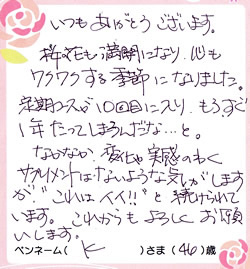 いつもありがとうございます。
桜の花も満開になり、心も
ワクワクする季節になりました。
定期コースが10回目に入り、もうすぐ
1年たってしまうんだな…と。
なかなか、変化や実感のわく
サプリメントはないような気がします
が、"これはイイ!!"と続けられて
います。これからもよろしくお願い
いします。
ペンネーム( K )さま(46)歳